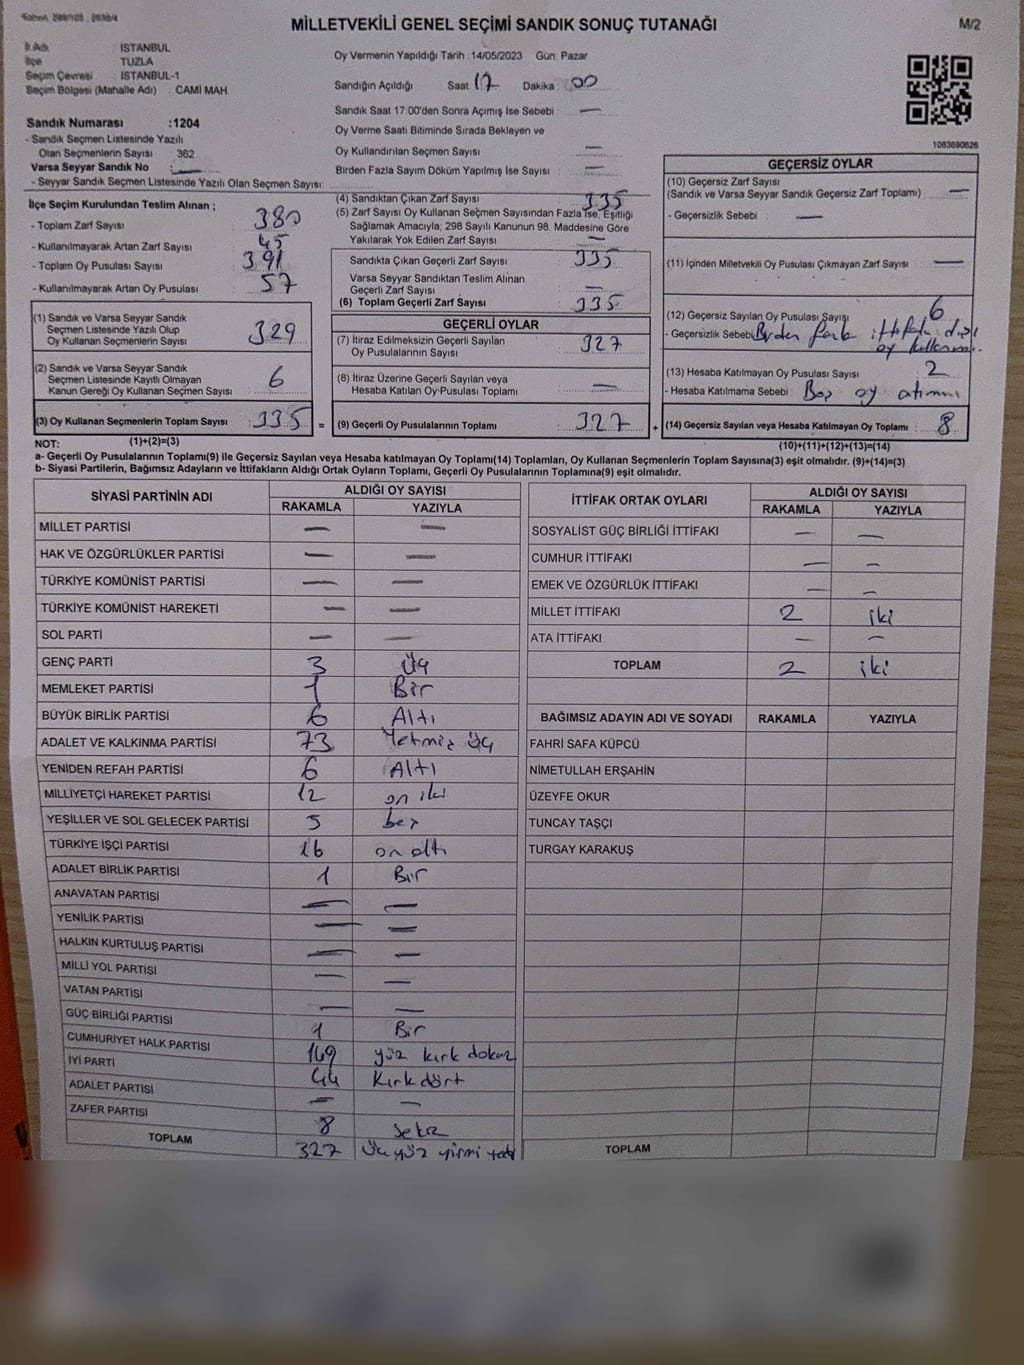 MİLLETVEKİLİ GENEL SEÇİMİ SANDIK SONUÇ TUTANAĞI
M/2
İl Adı : İSTANBUL
İlçe : TUZLA
Seçim Çevresi : İSTANBUL-1
Seçim Bölgesi (Mahalle Adı) : CAMİ MAH
Sandık Numarası :1204
- Sandık Seçmen Listesinde Yazılı
Olan Seçmenlerin Sayısı : 362
Varsa Seyyar Sandık No : —
- Seyyar Sandık Seçmen Listesinde Yazılı Olan Seçmen Sayısı:
Oy Vermenin Yapıldığı Tarih :14/05/2023 Gün: Pazar
Sandığın Açıldığı Saat 17 Dakika : 00
Sandık Saat 17:00'den Sonra Açılmış İse Sebebi : —
Oy Verme Saati Bitiminde Sırada Bekleyen ve
Oy Kullandırılan Seçmen Sayısı : —
Birden Fazla Sayım Döküm Yapılmış İse Sayısı : —
1083690626
İlçe Seçim Kurulundan Teslim Alınan ;
- Toplam Zarf Sayısı : 380
- Kullanılmayarak Artan Zarf Sayısı : 45
- Toplam Oy Pusulası Sayısı : 391
- Kullanılmayarak Artan Oy Pusulası : 57
(1) Sandık ve Varsa Seyyar Sandık
Seçmen Listesinde Yazılı Olup
Oy Kullanan Seçmenlerin Sayısı : 329
(2) Sandık ve Varsa Seyyar Sandık
Seçmen Listesinde Kayıtlı Olmayan
Kanun Gereği Oy Kullanan Seçmen Sayısı : 6
(3) Oy Kullanan Seçmenlerin Toplam Sayısı : 335
(4) Sandıktan Çıkan Zarf Sayısı : 335
(5) Zarf Sayısı Oy Kullanan Seçmen Sayısından Fazla İse, Eşitliği
Sağlamak Amacıyla; 298 Sayılı Kanunun 98. Maddesine Göre
Yakılarak Yok Edilen Zarf Sayısı : —
Sandıkta Çıkan Geçerli Zarf Sayısı : 335
Varsa Seyyar Sandıktan Teslim Alınan
Geçerli Zarf Sayısı : —
(6) Toplam Geçerli Zarf Sayısı : 335
GEÇERLİ OYLAR
(7) İtiraz Edilmeksizin Geçerli Sayılan
Oy Pusulalarının Sayısı : 327
(8) İtiraz Üzerine Geçerli Sayılan veya
Hesaba Katılan Oy Pusulası Toplamı : —
= (9) Geçerli Oy Pusulalarının Toplamı : 327 +
GEÇERSİZ OYLAR
(10) Geçersiz Zarf Sayısı
(Sandık ve Varsa Seyyar Sandık Geçersiz Zarf Toplamı) : —
- Geçersizlik Sebebi : —
(11) İçinden Milletvekili Oy Pusulası Çıkmayan Zarf Sayısı : —
(12) Geçersiz Sayılan Oy Pusulası Sayısı : 6
- Geçersizlik Sebebi : Birden fazla ittifaka dışı
oy kullanımı.
(13) Hesaba Katılmayan Oy Pusulası Sayısı : 2
- Hesaba Katılmama Sebebi : Boş oy atımı
(14) Geçersiz Sayılan veya Hesaba Katılmayan Oy Toplamı : 8
NOT: (1)+(2)=(3)
(10)+(11)+(12)+(13)=(14)
a- Geçerli Oy Pusulalarının Toplamı(9) ile Geçersiz Sayılan veya Hesaba katılmayan Oy Toplamı(14) Toplamları, Oy Kullanan Seçmenlerin Toplam Sayısına(3) eşit olmalıdır. (9)+(14)=(3)
b- Siyasi Partilerin, Bağımsız Adayların ve İttifakların Aldığı Ortak Oyların Toplamı, Geçerli Oy Pusulalarının Toplamına(9) eşit olmalıdır.
SİYASİ PARTİNİN ADI ALDIĞI OY SAYISI
RAKAMLA YAZIYLA
MİLLET PARTİSİ — —
HAK VE ÖZGÜRLÜKLER PARTİSİ — —
TÜRKİYE KOMÜNİST PARTİSİ — —
TÜRKİYE KOMÜNİST HAREKETİ — —
SOL PARTİ — —
GENÇ PARTİ 3 Üç
MEMLEKET PARTİSİ 1 Bir
BÜYÜK BİRLİK PARTİSİ 6 Altı
ADALET VE KALKINMA PARTİSİ 73 Yetmiş Üç
YENİDEN REFAH PARTİSİ 6 Altı
MİLLİYETÇİ HAREKET PARTİSİ 12 on iki
YEŞİLLER VE SOL GELECEK PARTİSİ 5 beş
TÜRKİYE İŞÇİ PARTİSİ 16 on altı
ADALET BİRLİK PARTİSİ 1 Bir
ANAVATAN PARTİSİ — —
YENİLİK PARTİSİ — —
HALKIN KURTULUŞ PARTİSİ — —
MİLLİ YOL PARTİSİ — —
VATAN PARTİSİ — —
GÜÇ BİRLİĞİ PARTİSİ 1 Bir
CUMHURİYET HALK PARTİSİ 149 yüz kırk dokuz
İYİ PARTİ 44 Kırk dört
ADALET PARTİSİ — —
ZAFER PARTİSİ 8 Sekiz
TOPLAM 327 Üç yüz yirmi yedi
İTTİFAK ORTAK OYLARI ALDIĞI OY SAYISI
RAKAMLA YAZIYLA
SOSYALİST GÜÇ BİRLİĞİ İTTİFAKI — —
CUMHUR İTTİFAKI — —
EMEK VE ÖZGÜRLÜK İTTİFAKI — —
MİLLET İTTİFAKI 2 iki
ATA İTTİFAKI — —
TOPLAM 2 iki
BAĞIMSIZ ADAYIN ADI VE SOYADI RAKAMLA YAZIYLA
FAHRİ SAFA KÜPCÜ
NİMETULLAH ERŞAHİN
ÜZEYFE OKUR
TUNCAY TAŞÇI
TURGAY KARAKUŞ
TOPLAM